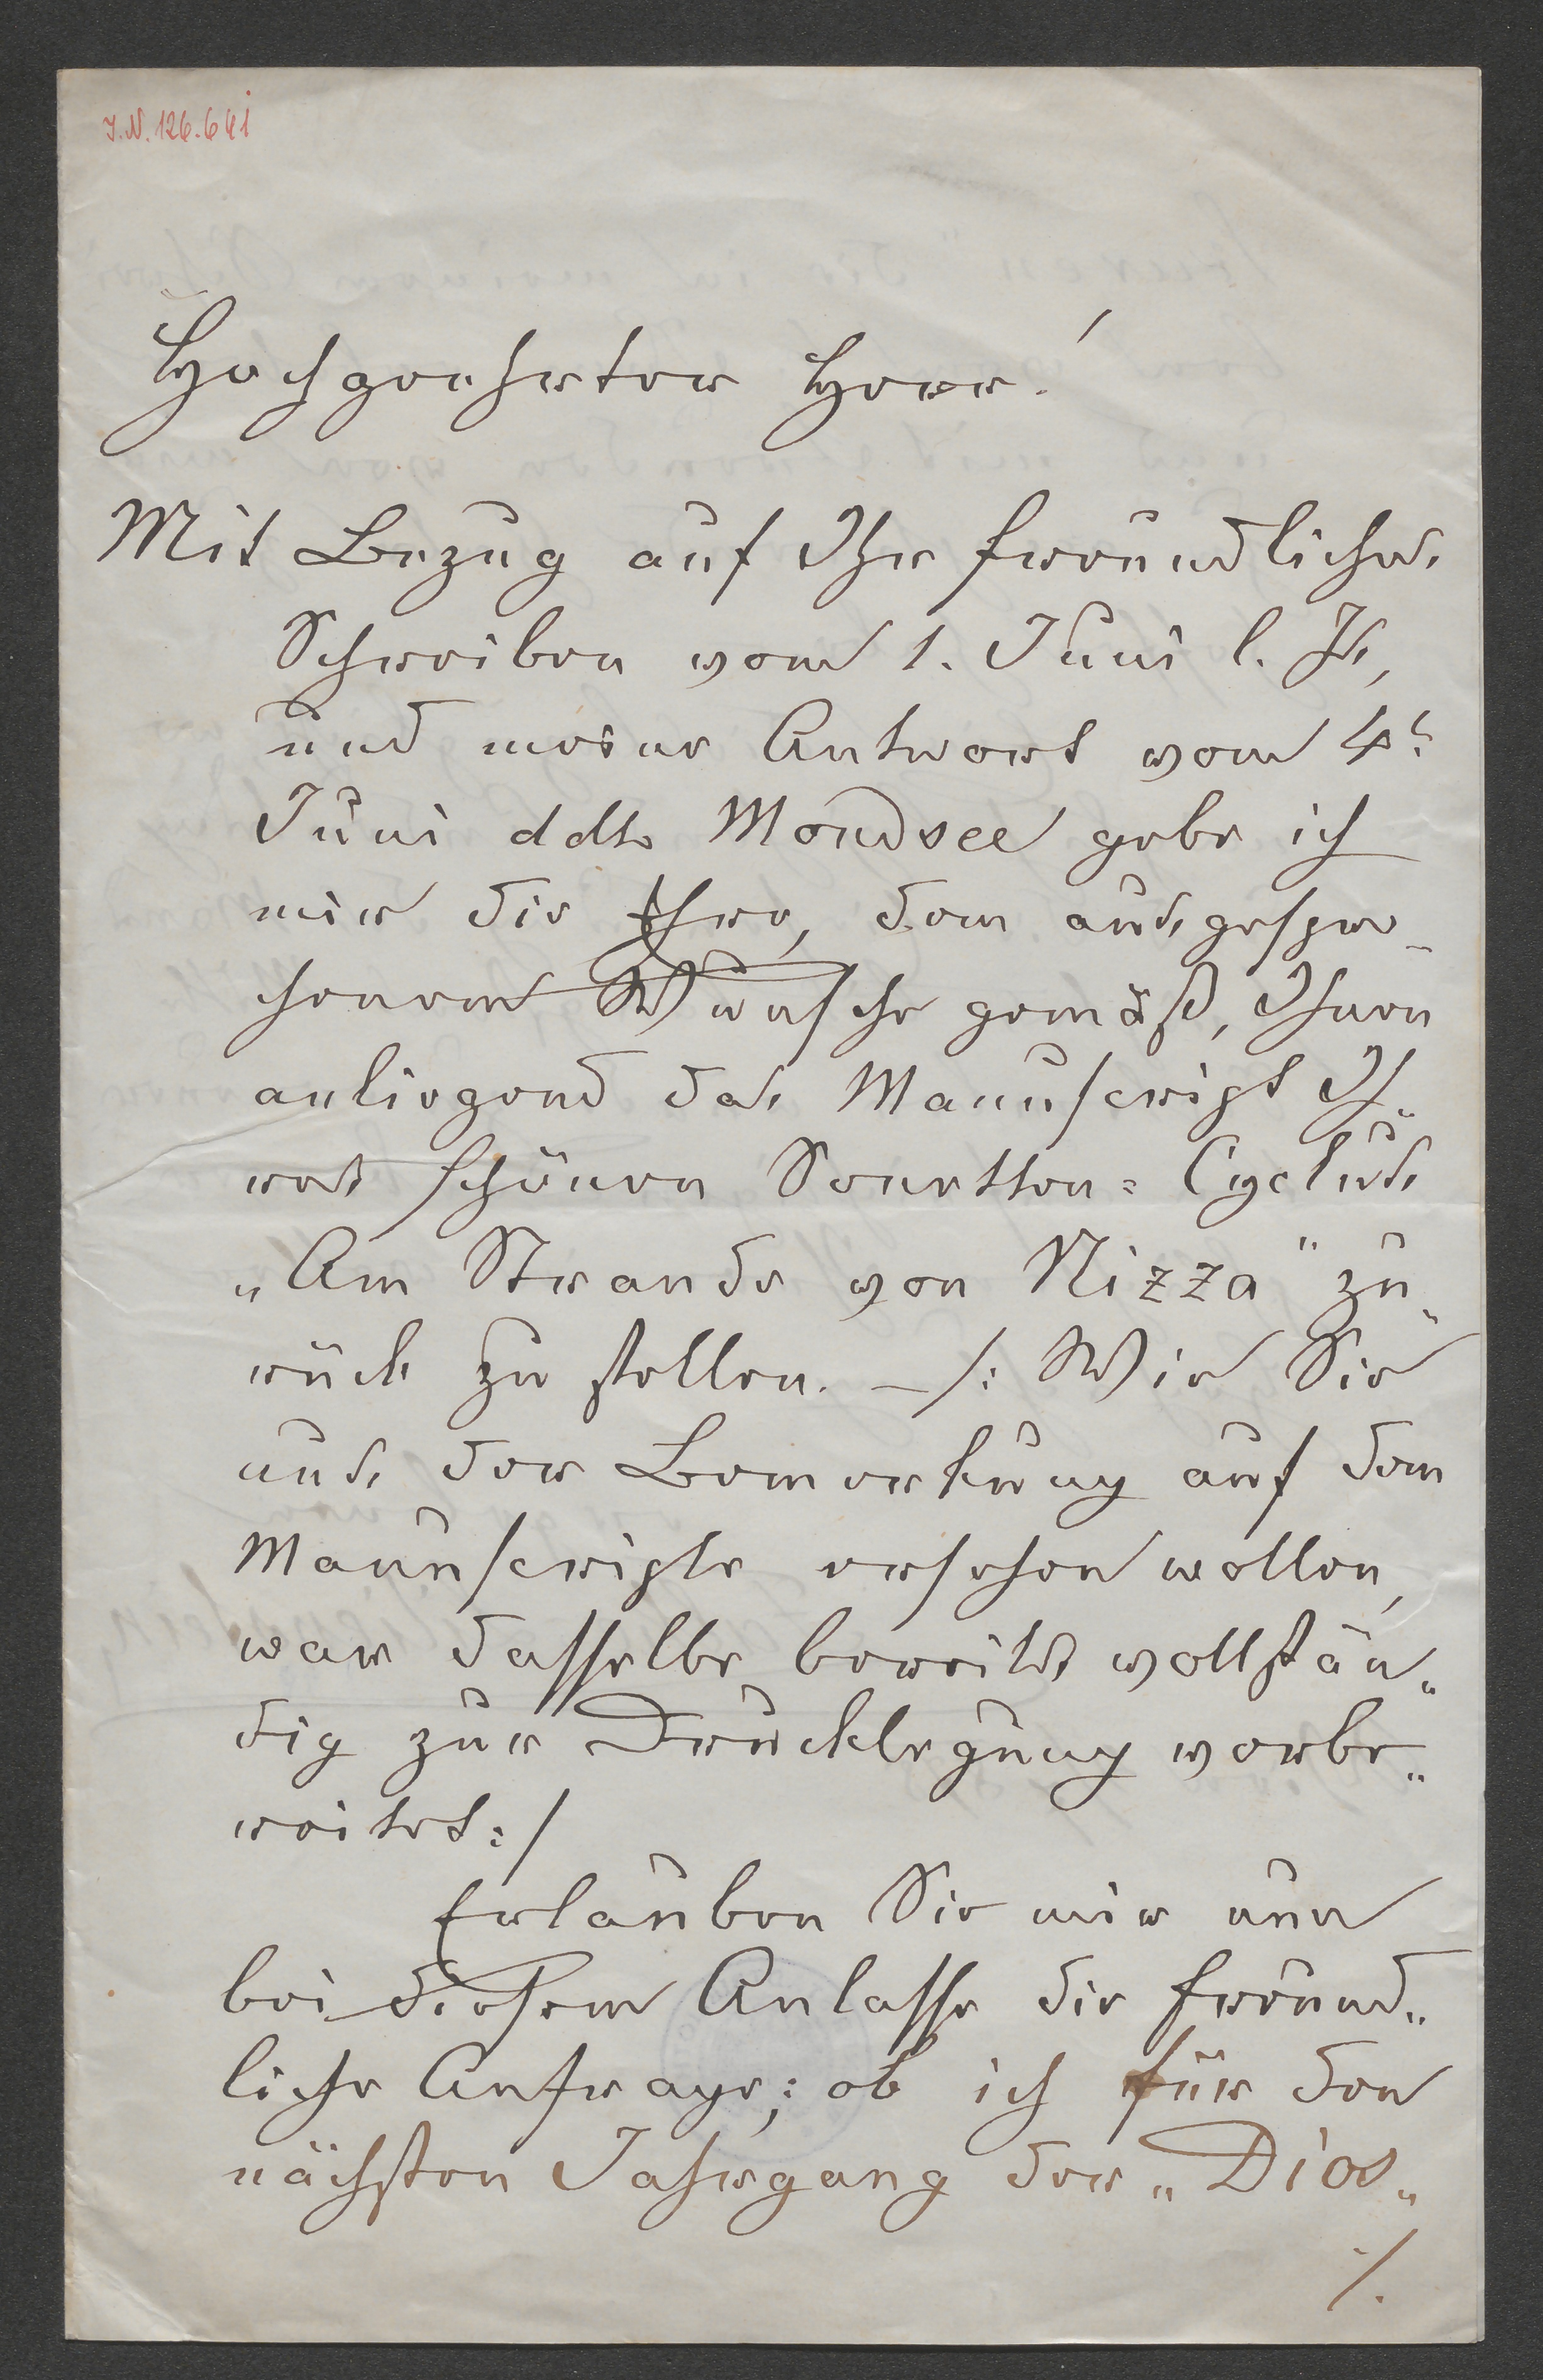 I.N. 126.641
Hochgeehrter Herr!
Mit Bezug auf Ihr freundliches
Schreiben vom 1. Juni l. Js,
und meine Antwort vom 4t
Juni ddto Mondsee gebe ich
mir die Ehre, dem ausgespro-
chenen Wunsche gemäß, Ihnen
anliegend das Manuscript Ih„
res schönen Sonetten=Cyclus
„Am Strande von Nizza" zu„
rück zu stellen. – /: Wie Sie
aus der Bemerkung auf dem
Manuscripte ersehen wollen,
war dasselbe bereits vollstän„
dig zur Drucklegung vorbe„
reitet :/
Erlauben Sie mir nun
bei diesem Anlasse die freund„
liche Anfrage; ob ich für den
nächsten Jahrgang der „Dios„
./.